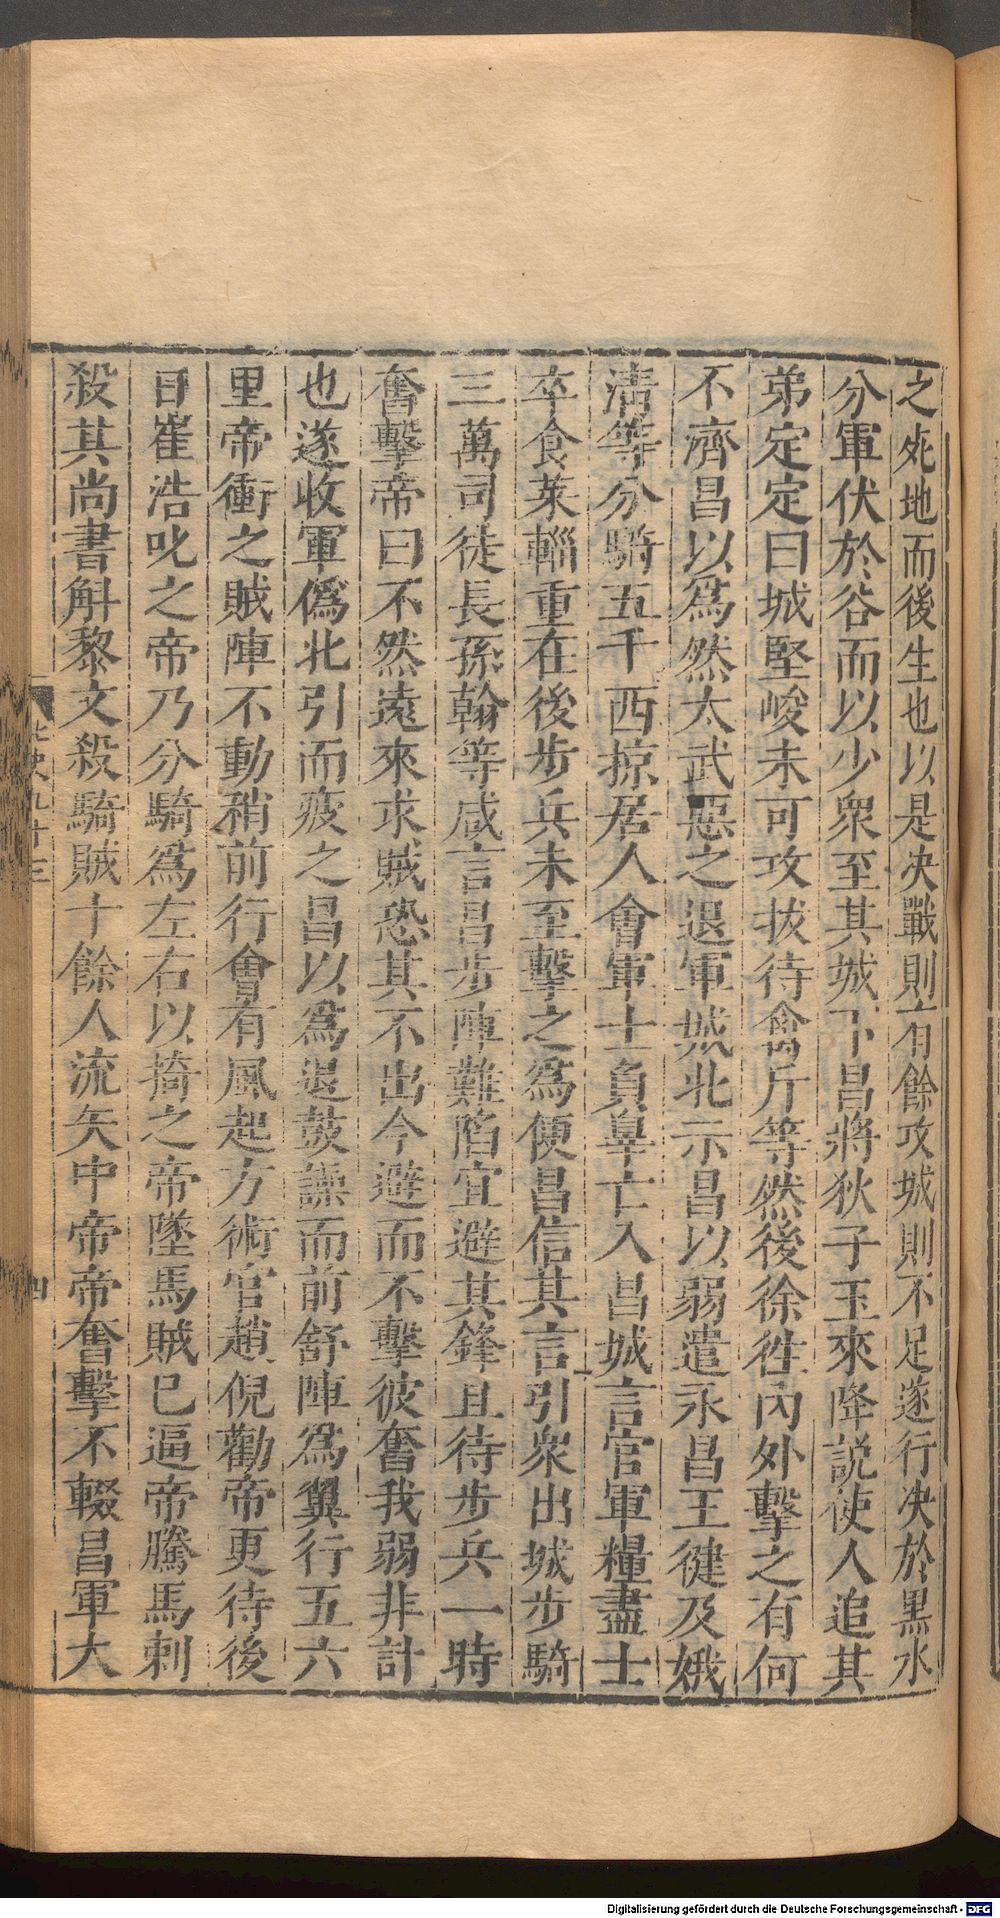 之死地而後生也以是决戰則有餘攻城則不足遂行决於黒水
分軍伏於谷而以少衆至其城下昌將狄子玉來降説使人追其
弟定定曰城堅峻未可攻拔待禽斤等然後徐徃內外擊之有何
不濟昌以爲然太武惡之退軍城北示昌以弱遣永昌王健及娥
淸等分騎五千西掠居人會軍士負辠亡入昌城言官軍糧盡士
卒食菜輜重在後步兵未至擊之爲便昌信其言引衆出城步騎
三萬司徒長孫翰等咸言昌步陣難陷宜避其鋒且待步兵一時
奮擊帝曰不然遠來求賊恐其不出今避而不擊彼奮我弱非計
也遂收軍僞北引而疲之昌以爲退鼓譟而前舒陣爲翼行五六
里帝衝之賊陣不動稍前行會有風起方術官趙倪勸帝更待後
日崔浩叱之帝乃分騎爲左右以掎之帝墜馬賊已逼帝騰馬刺
殺其尚書斛黎文殺騎賊十餘人流矢中帝帝奮擊不輟昌軍大
北史九十三
四
Digitalisierung gefördert durch die Deutsche Forschungsgemeinschaft - DFG